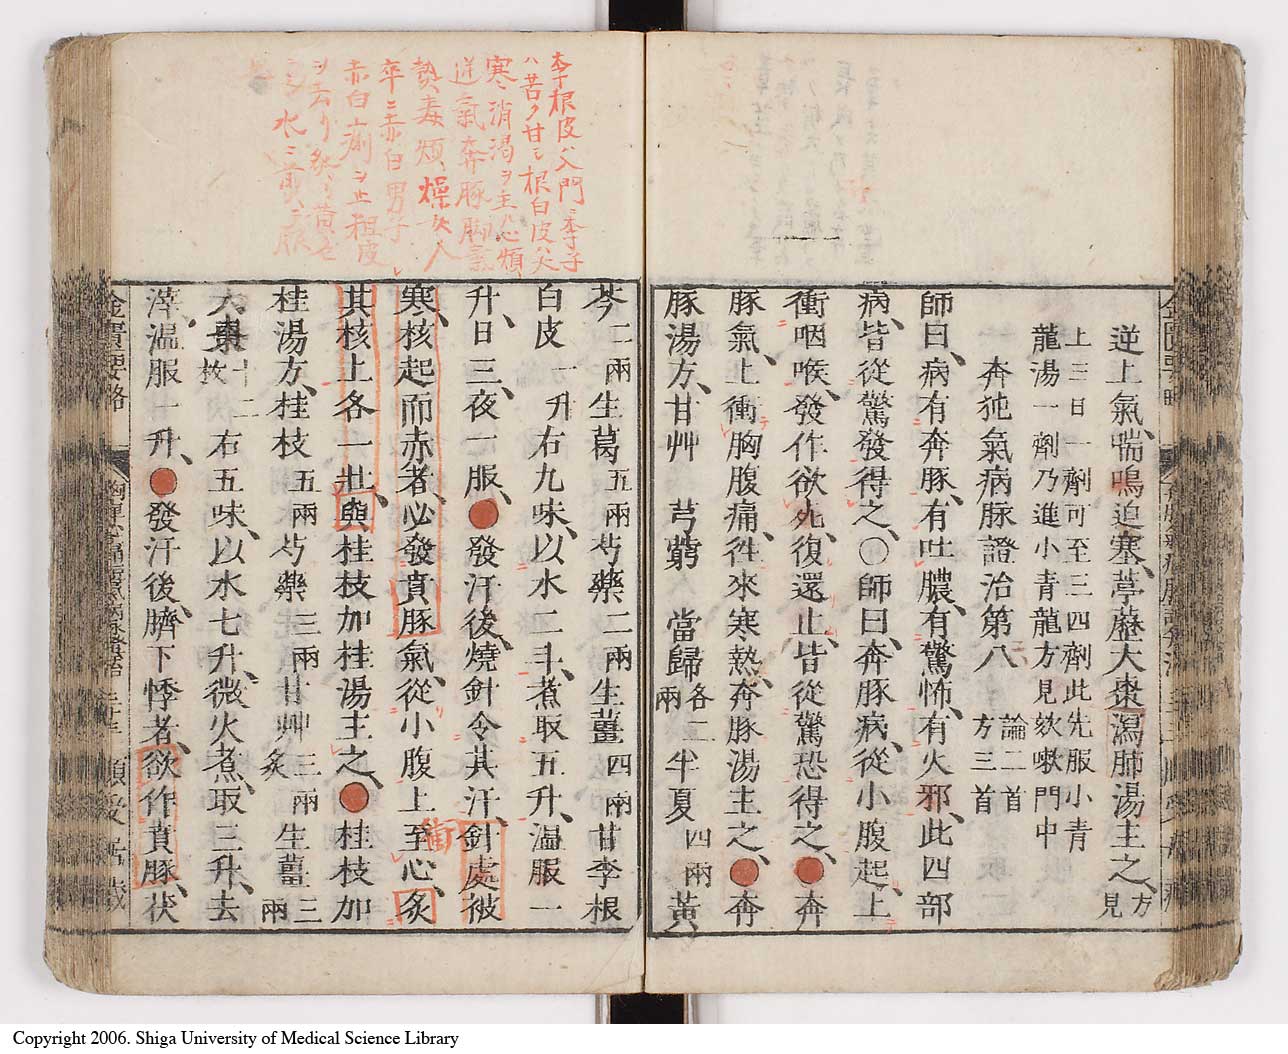 逆上氣、喘鳴迫塞、葶藶大棗瀉肺湯主之、方見
上三日一劑可至三四劑此先服小青
龍湯一劑乃進小青龍方見欬嗽門中
奔㹠氣病脉證治第八 論二首 方三首
師曰、病有奔豚、有吐膿、有驚怖、有火邪、此四部
病、皆從驚發得之、〇師曰、奔豚病、從小腹起、上
衝咽喉、發作欲死、復還止、皆從驚恐得之、●奔
豚氣、上衝胸腹痛、徃來寒熱、奔豚湯主之、●奔
豚湯方、甘艸 芎藭 當歸 各二兩 半夏 四兩 黃
芩 二兩 生葛 五兩 芍藥 二兩 生薑 四兩 甘李根
白皮 一升 右九味、以水二斗、煮取五升、溫服一
升、日三夜一服、●發汗後、燒針令其汗、針處被
寒、核起而赤者、必發賁豚、氣從小腹上至心、炙
其核上各一壯、與桂枝加桂湯主之、●桂枝加
桂湯方、桂枝 五兩 芍藥 三兩 甘艸 三兩炙 生薑 三兩
大棗 十二枚 右五味、以水七升、微火煮、取三升、去
滓、溫服一升、●發汗後、臍下悸者、欲作賁豚、茯
金匱要略
李根皮ハ入門ニ李子
ハ苦ク甘シ根白皮ハ大
寒消渴ヲ主ル心煩
逆氣奔豚脚氣
熱毒煩燥女人
卒ニ赤白男子
赤白痢ヲ止粗皮
ヲ去リ
衝
Copyright 2006. Shiga University of Medical Science Library